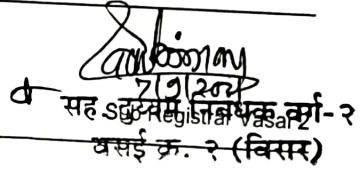 7/9/2024
सह. दुय्यम निबंधक वर्ग-२
Sub Registrar Vasai 2
वसई क्र. २ (विरार)